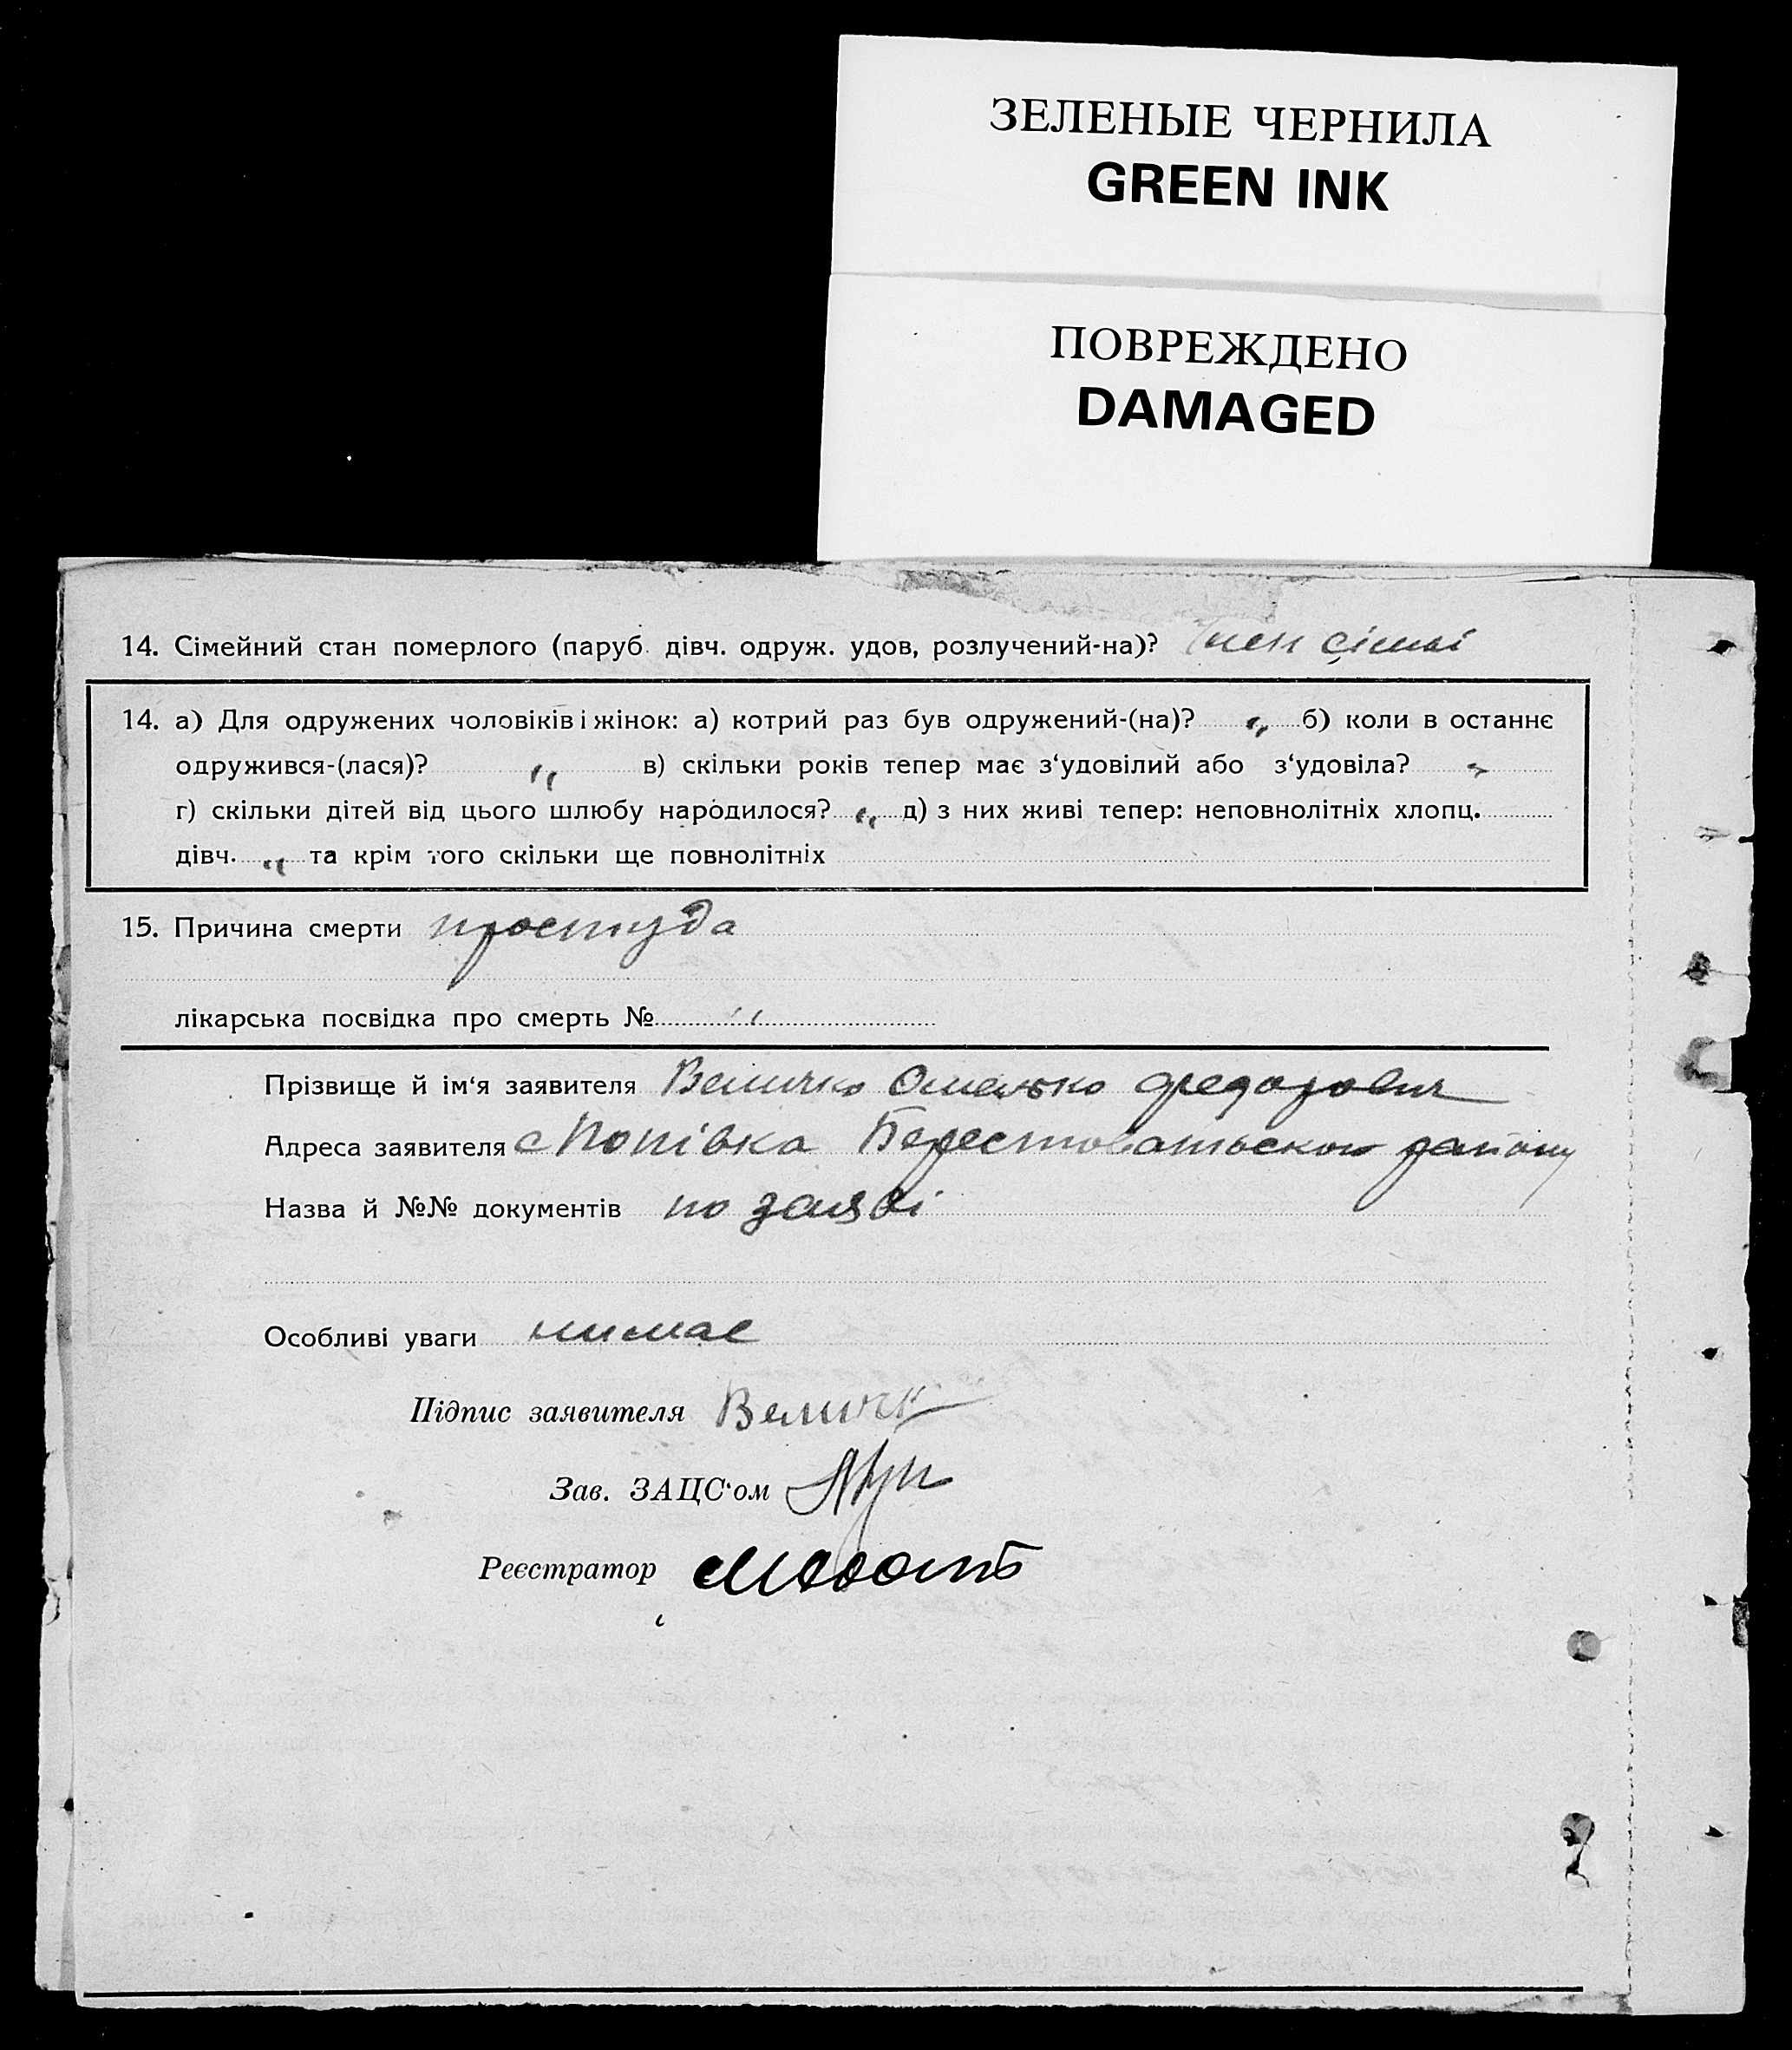 ЗЕЛЕНЫЕ ЧЕРНИЛА
GREEN INK
ПОВРЕЖДЕНО
DAMAGED
14. Сімейний стан померлого (паруб. дівч. одруж. удов, розлучений-на)? член сімьі
14. а) Для одружених чоловіків і жінок: а) котрий раз був одружений-(на)? „ б) коли в останнє
одружився-(лася)? „ в) скільки років тепер має з‘удовілий або з‘удовіла? „
г) скільки дітей від цього шлюбу народилося? „ д) з них живі тепер: неповнолітніх хлопц.
дівч. „ та крім того скільки ще повнолітніх
15. Причина смерти простуда
лікарська посвідка про смерть № „
Прізвище й ім‘я заявителя Величко Омелько Федорович
Адреса заявителя с Попівка Берестоватьского району
Назва й №№ документів по заяві
Особливі уваги нимае
Підпис заявителя Величк
Зав. ЗАЦС‘ом
Реєстратор